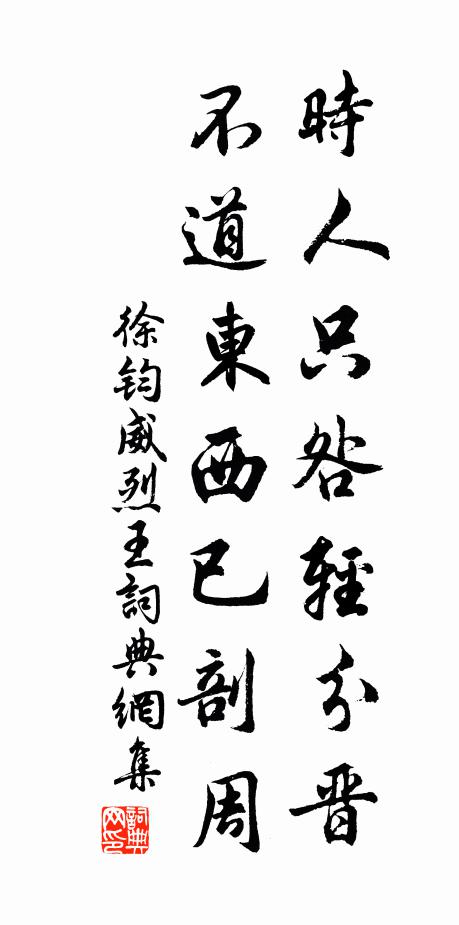 時人只咎輕分晉
不道東西已剖周
徐鈞威烈王詞典網集
詞典网印